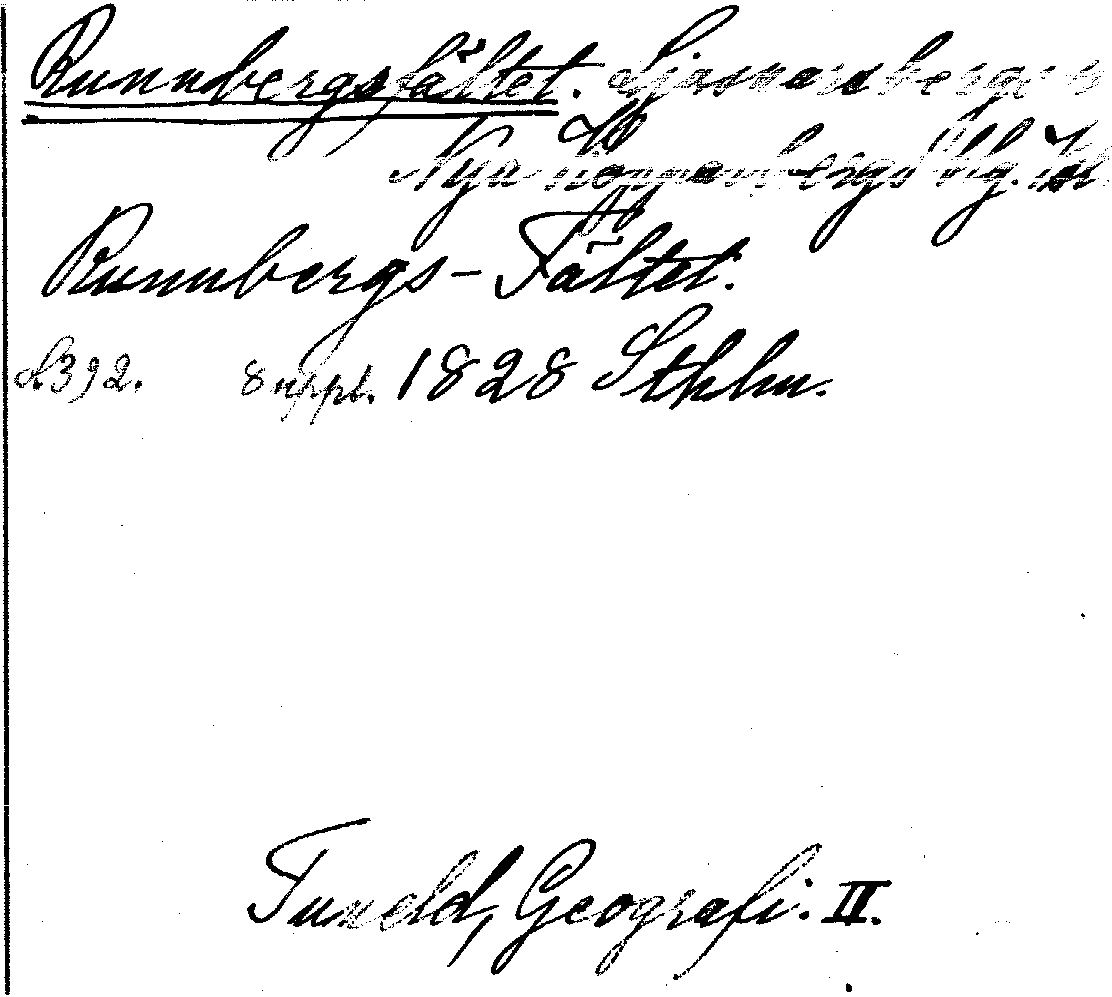 Runnbergsfältet. Ljusnarsbergs s
Nya Kopparbergs blg.
Runnbergs-Fältet.
S. 392. 8 uppl. 1828 Sthlm.
Tuneld, Geografi. II.